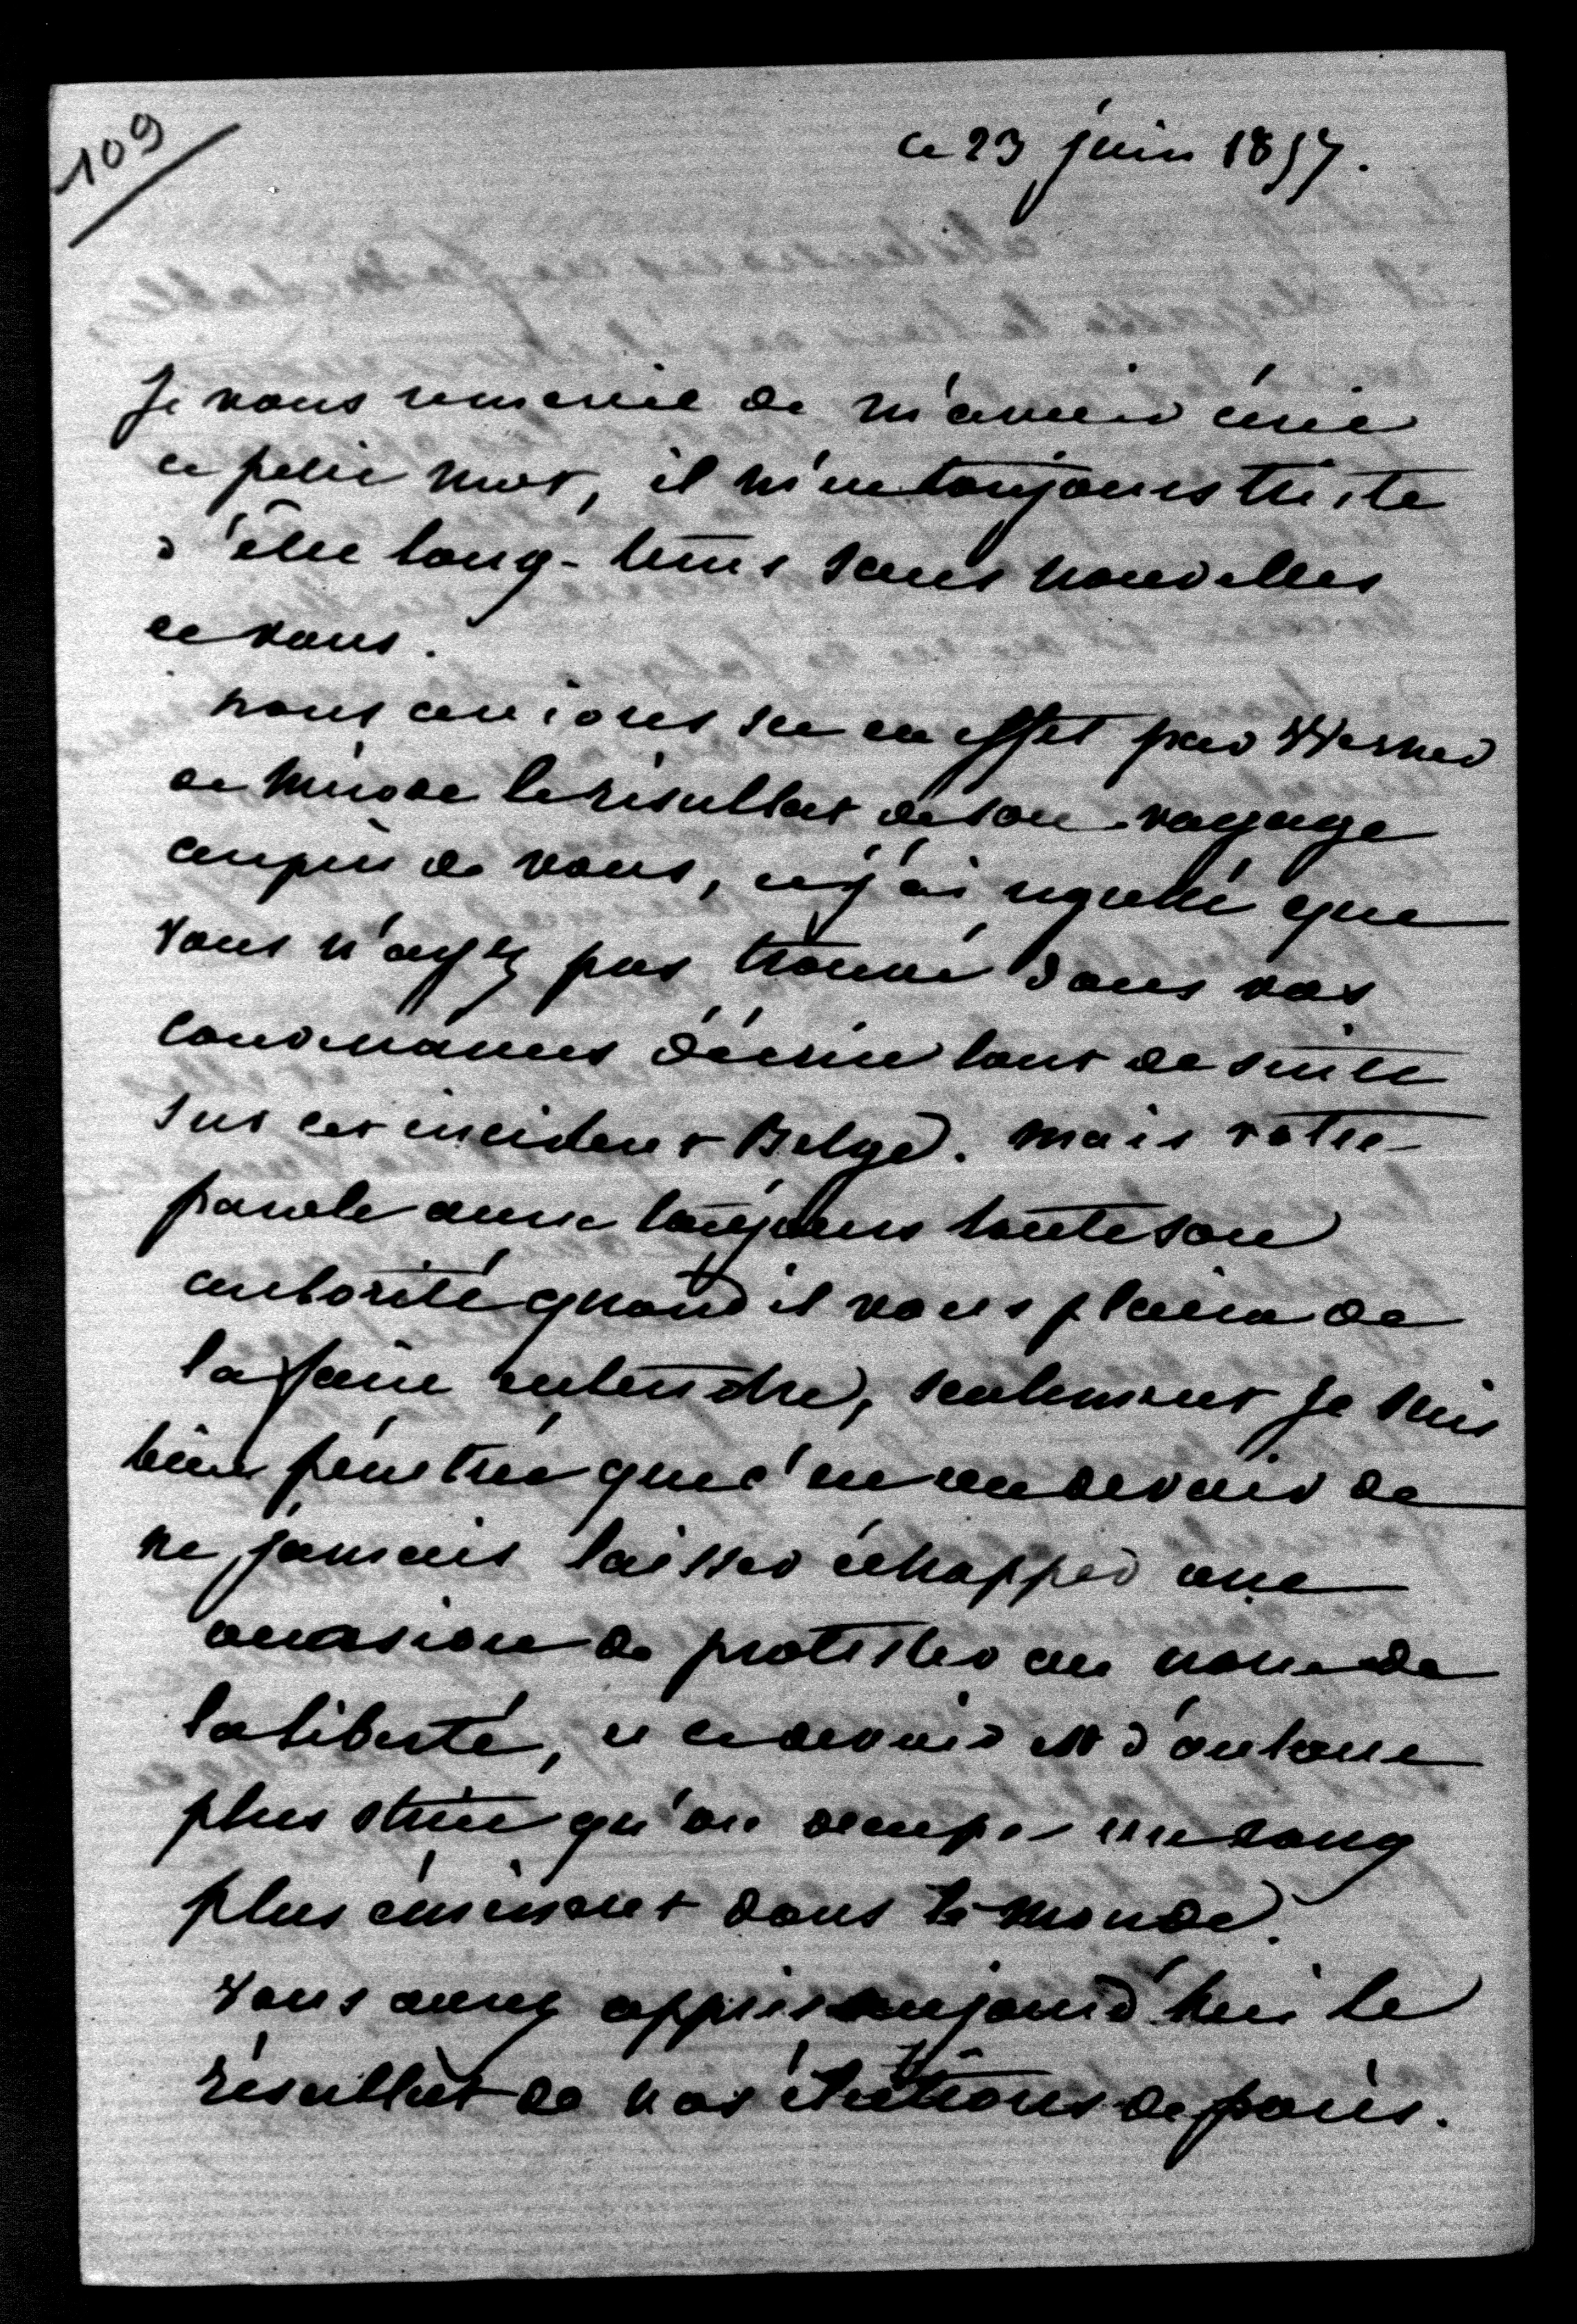 109
ce 23 juin 1857.
Je vous remercie de m'avoir écrit
ce petit mot, il m'est toujours triste
d'être long-tems sans nouvelles
de vous.
nous avions su en effet par Werner
de Mérode le résultat de son voyage
auprès de vous, et j'ai regretté que
vous n'ayez pas trouvé dans vos
convenances d'écrire tout de suite
sur cet incident Belge. mais votre
parole aura toujours toute son
autorité quand il vous plaira de
la faire entendre, seulement je suis
bien pénétré que c'est un devoir de
ne jamais laisser échapper une
occasion de protester au nom de
la liberté, et ce devoir est d'autant
plus strict qu'on occupe un rang
plus éminent dans le monde.
Vous aurez appris aujourd'hui le
résultat de nos élections de paris.